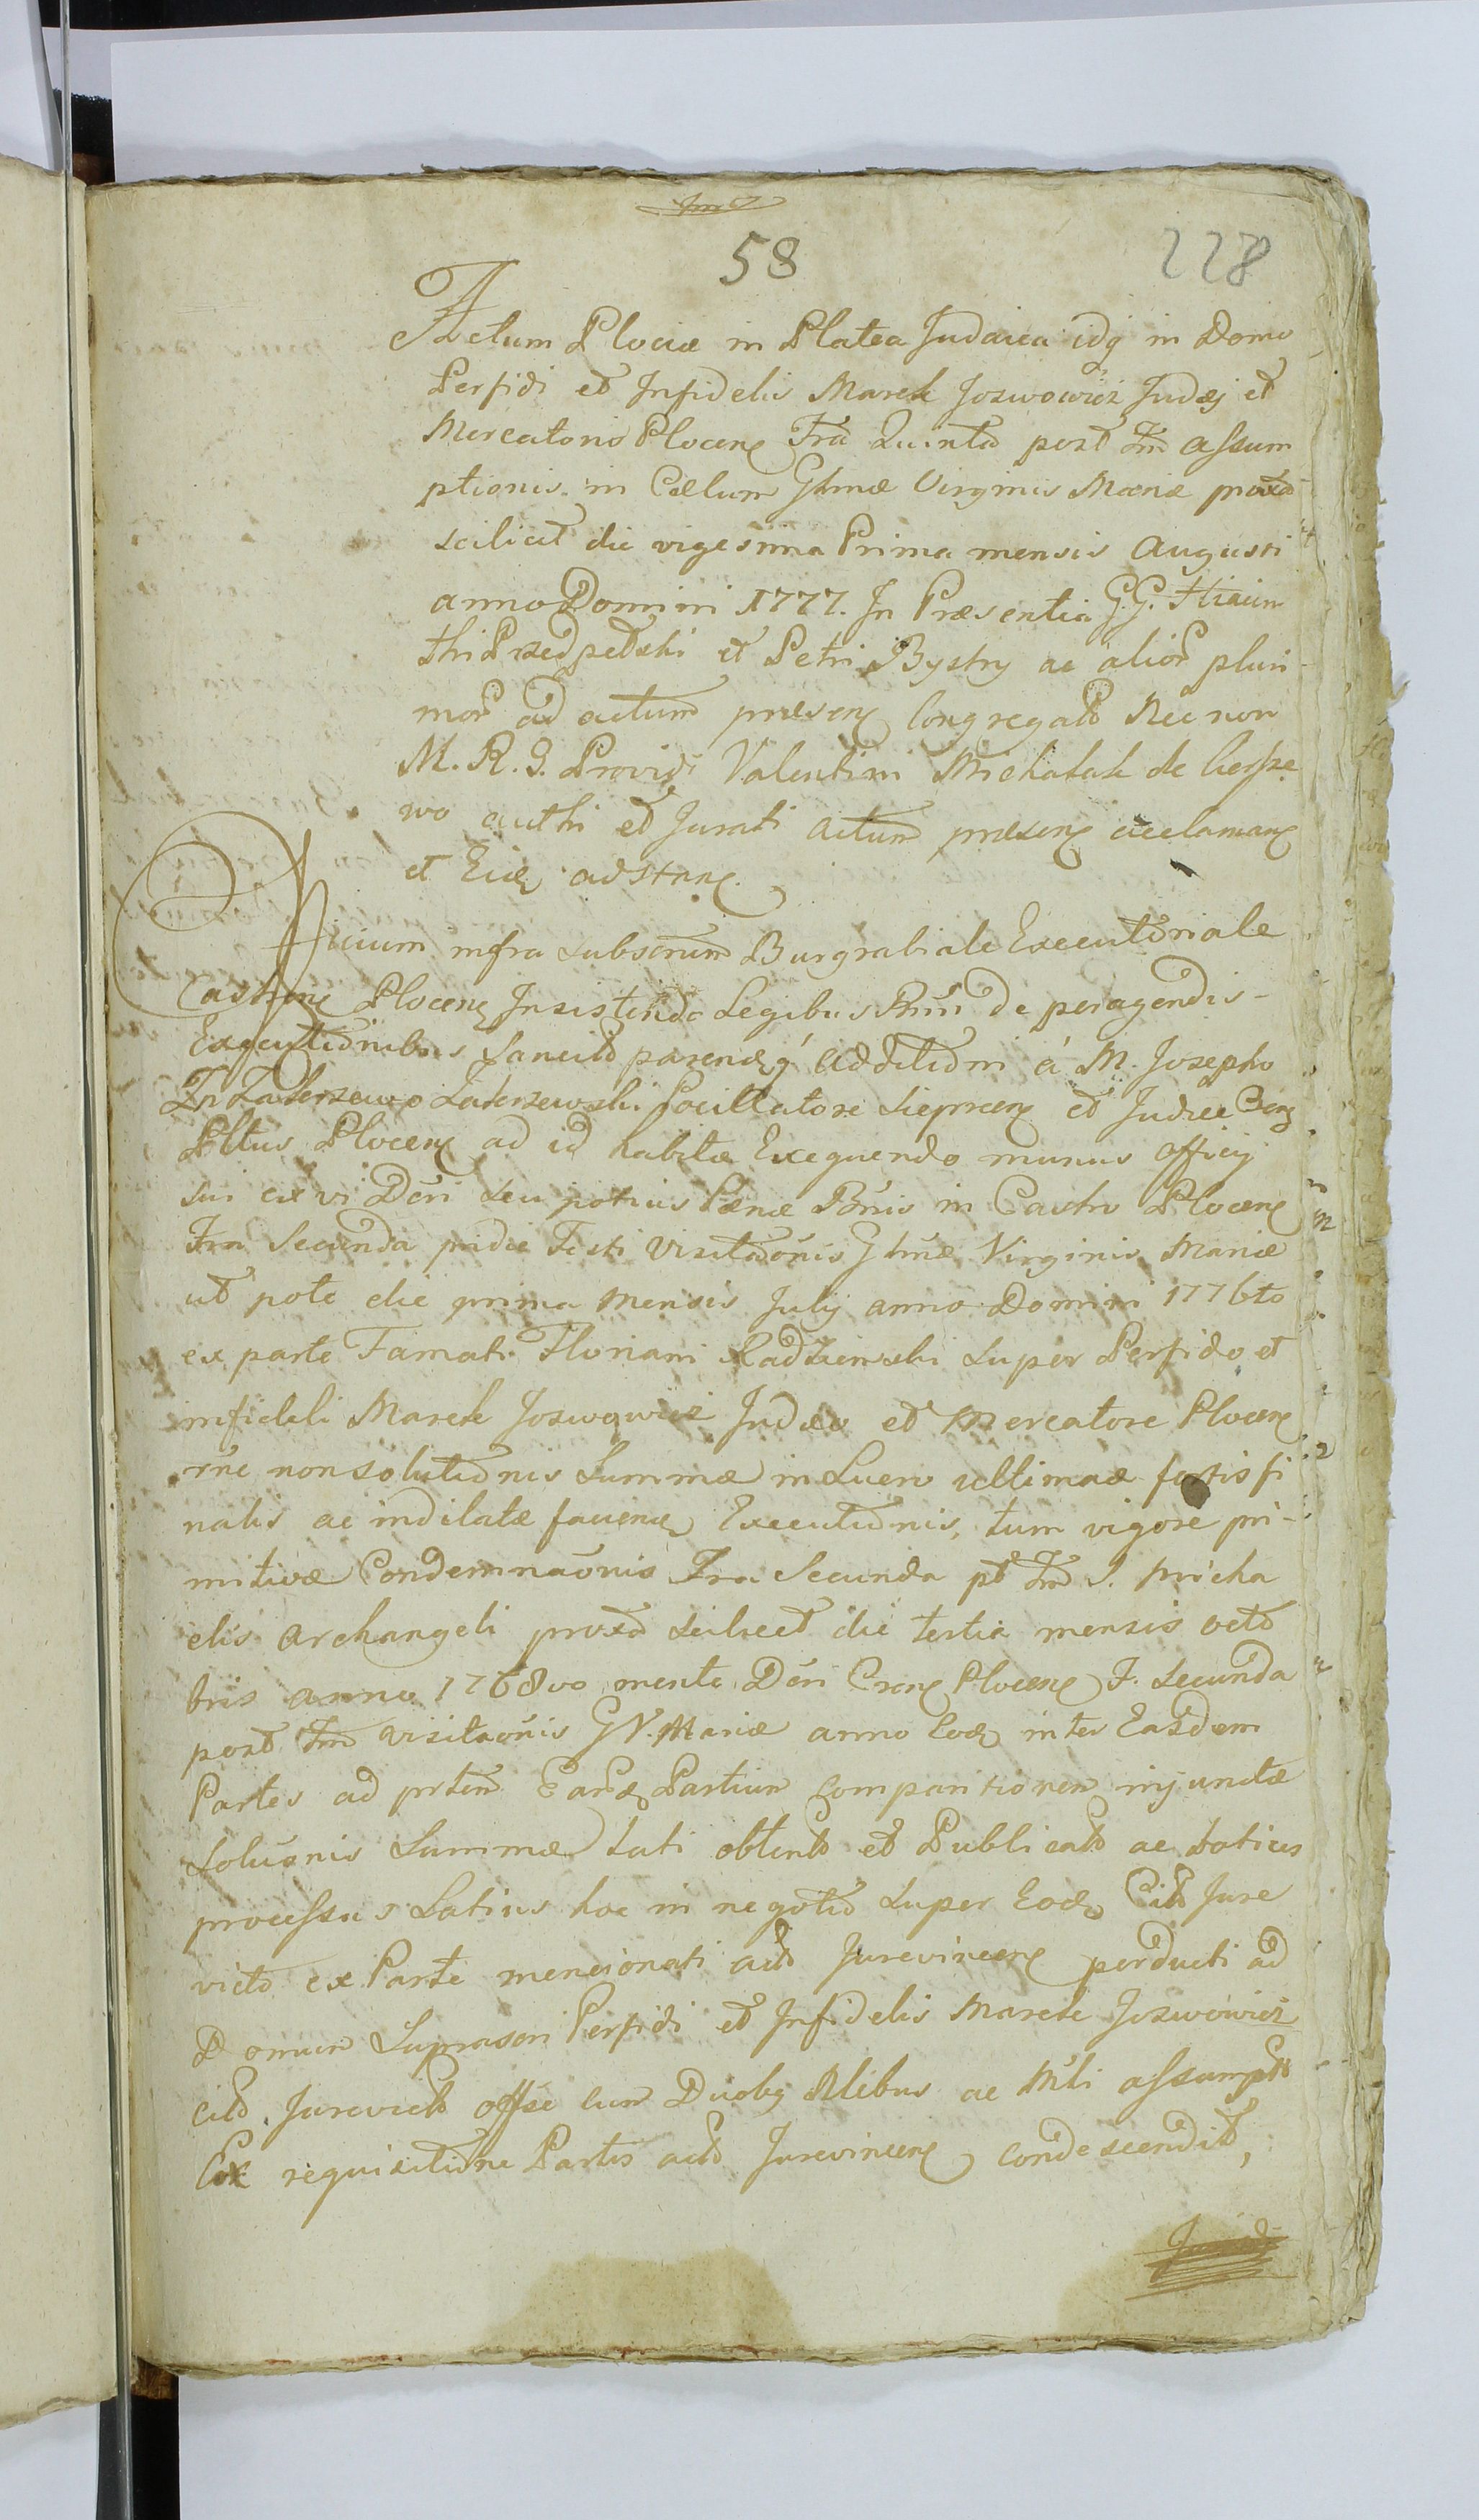 58
228
Actum Plociæ in Platea Judaica idq in Domo
Perfidi et Infidelis Marek Jozwowicz Judæj et
Mercatoris Plocen Fra Quinta post Fm assum
ptionis in Cælum Gtmæ Virginis Mariæ proxa
scilicet die vigesima Prima mensis Augusti
anno Domini 1777. In Præsentia G.G. Hiacin
thi Przedpełski et Petri Bystry ac alior pluri-
mor ad actum præsen Congregato Nec non
M. R. G. Providi Valentini Michalak de
wo authi et Jurati actum præsen acclaman
et Eide adstan.
Officium infra subscrum Burgrabiale Executoriale
Castren Plocen Insistendo Legibus Rni de peragendis
Executionibus sancito parendq additioni á M. Josepho
In Zaborowo Pocillatore Sieprcen et Judice Cen
Pltus Plocen ad id habitæ Exequendo munus officij
sui ex vi Dcri seu potius Pænæ Bnis in Castro Plocen
Fra Secunda pridie Festi Visitaōnis Gtmæ Virginis Mariæ
ut pote die prima Mensis Julij anno Domini 1776to
ex parte Famati Floriani Radziewski super Perfido et
infideli Marek Jozwowicz Judæo et Mercatore Plocen
rne non solutionis Summæ in Lucro ultimaæ fortis fi
nalis ac indilatæ faciendæ Executionis, tum vigore pri-
mitivæ Condemnaōnis Fra Secunda pt Fm S. Micha
elis Archangeli proxa scilicet die tertia mensis octo
bris anno 1768vo mente Dcri Cren Plocen F. Secunda
post Fm Visitaōnis GV. Mariæ anno Eod inter Easdem
Partes ad prtem Earde Partium Comparitionem injunctæ
soluōnis Summæ lati obtento et Publicato ac totius
processus Latius hoc in negotio super Eode Cito Jure
victo ex Parte mencionati acto Jurevincen perducti ad
Domum Suprascri Perfidi et Infidelis Marek Jozwowicz
cito Jurevicto offse cum Duobq Nlibus ac Mli assumpto
Ex requisitione Partis acto Jurevincen condescendit,